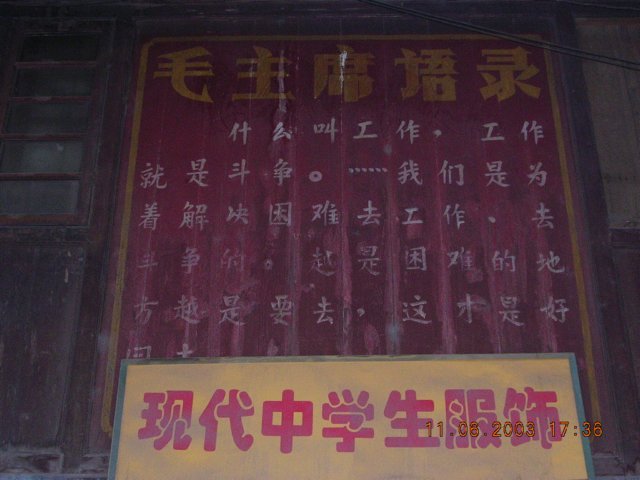 毛主席语录
什么叫工作，工作
就是斗争。……我们是为
着解决困难去工作、去
斗争的。越是困难的地
方越是要去，这才是好
同志
现代中学生服饰
11.06.2003 17:36